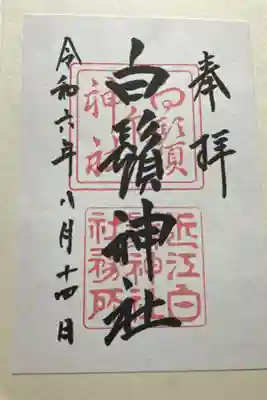 奉拝
白鬚神社
令和六年八月十四日
白鬚
神社
近江白
鬚神社
社務所